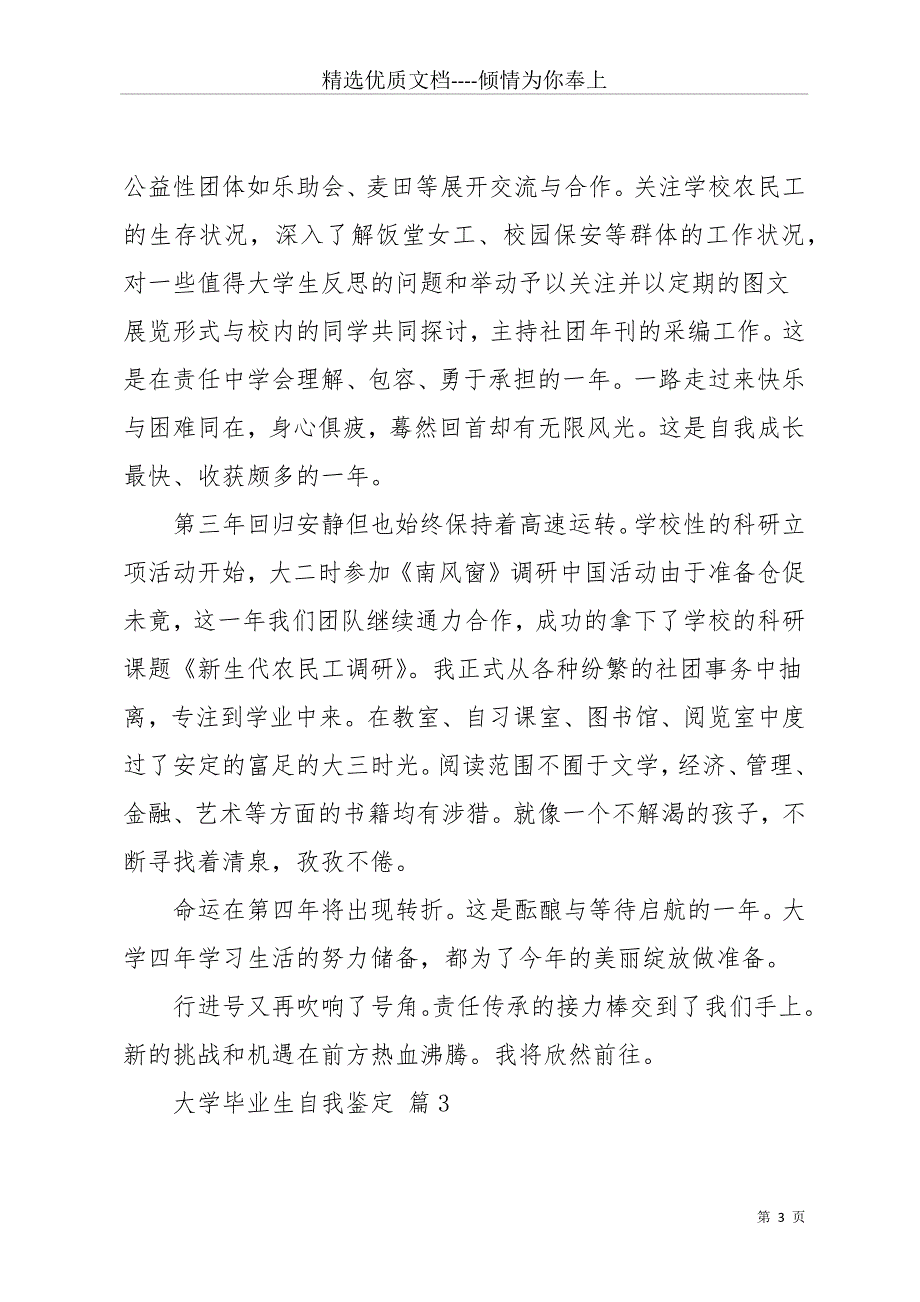 精选优质文档----倾情为你奉上
公益性团体如乐助会、麦田等展开交流与合作。关注学校农民工
的生存状况，深入了解饭堂女工、校园保安等群体的工作状况，
对一些值得大学生反思的问题和举动予以关注并以定期的图文
展览形式与校内的同学共同探讨，主持社团年刊的采编工作。这
是在责任中学会理解、包容、勇于承担的一年。一路走过来快乐
与困难同在，身心俱疲，蓦然回首却有无限风光。这是自我成长
最快、收获颇多的一年。
第三年回归安静但也始终保持着高速运转。学校性的科研立
项活动开始，大二时参加《南风窗》调研中国活动由于准备仓促
未竟，这一年我们团队继续通力合作，成功的拿下了学校的科研
课题《新生代农民工调研》。我正式从各种纷繁的社团事务中抽
离，专注到学业中来。在教室、自习课室、图书馆、阅览室中度
过了安定的富足的大三时光。阅读范围不囿于文学，经济、管理、
金融、艺术等方面的书籍均有涉猎。就像一个不解渴的孩子，不
断寻找着清泉，孜孜不倦。
命运在第四年将出现转折。这是酝酿与等待启航的一年。大
学四年学习生活的努力储备，都为了今年的美丽绽放做准备。
行进号又再吹响了号角。责任传承的接力棒交到了我们手上。
新的挑战和机遇在前方热血沸腾。我将欣然前往。
大学毕业生自我鉴定 篇3
第 3 页